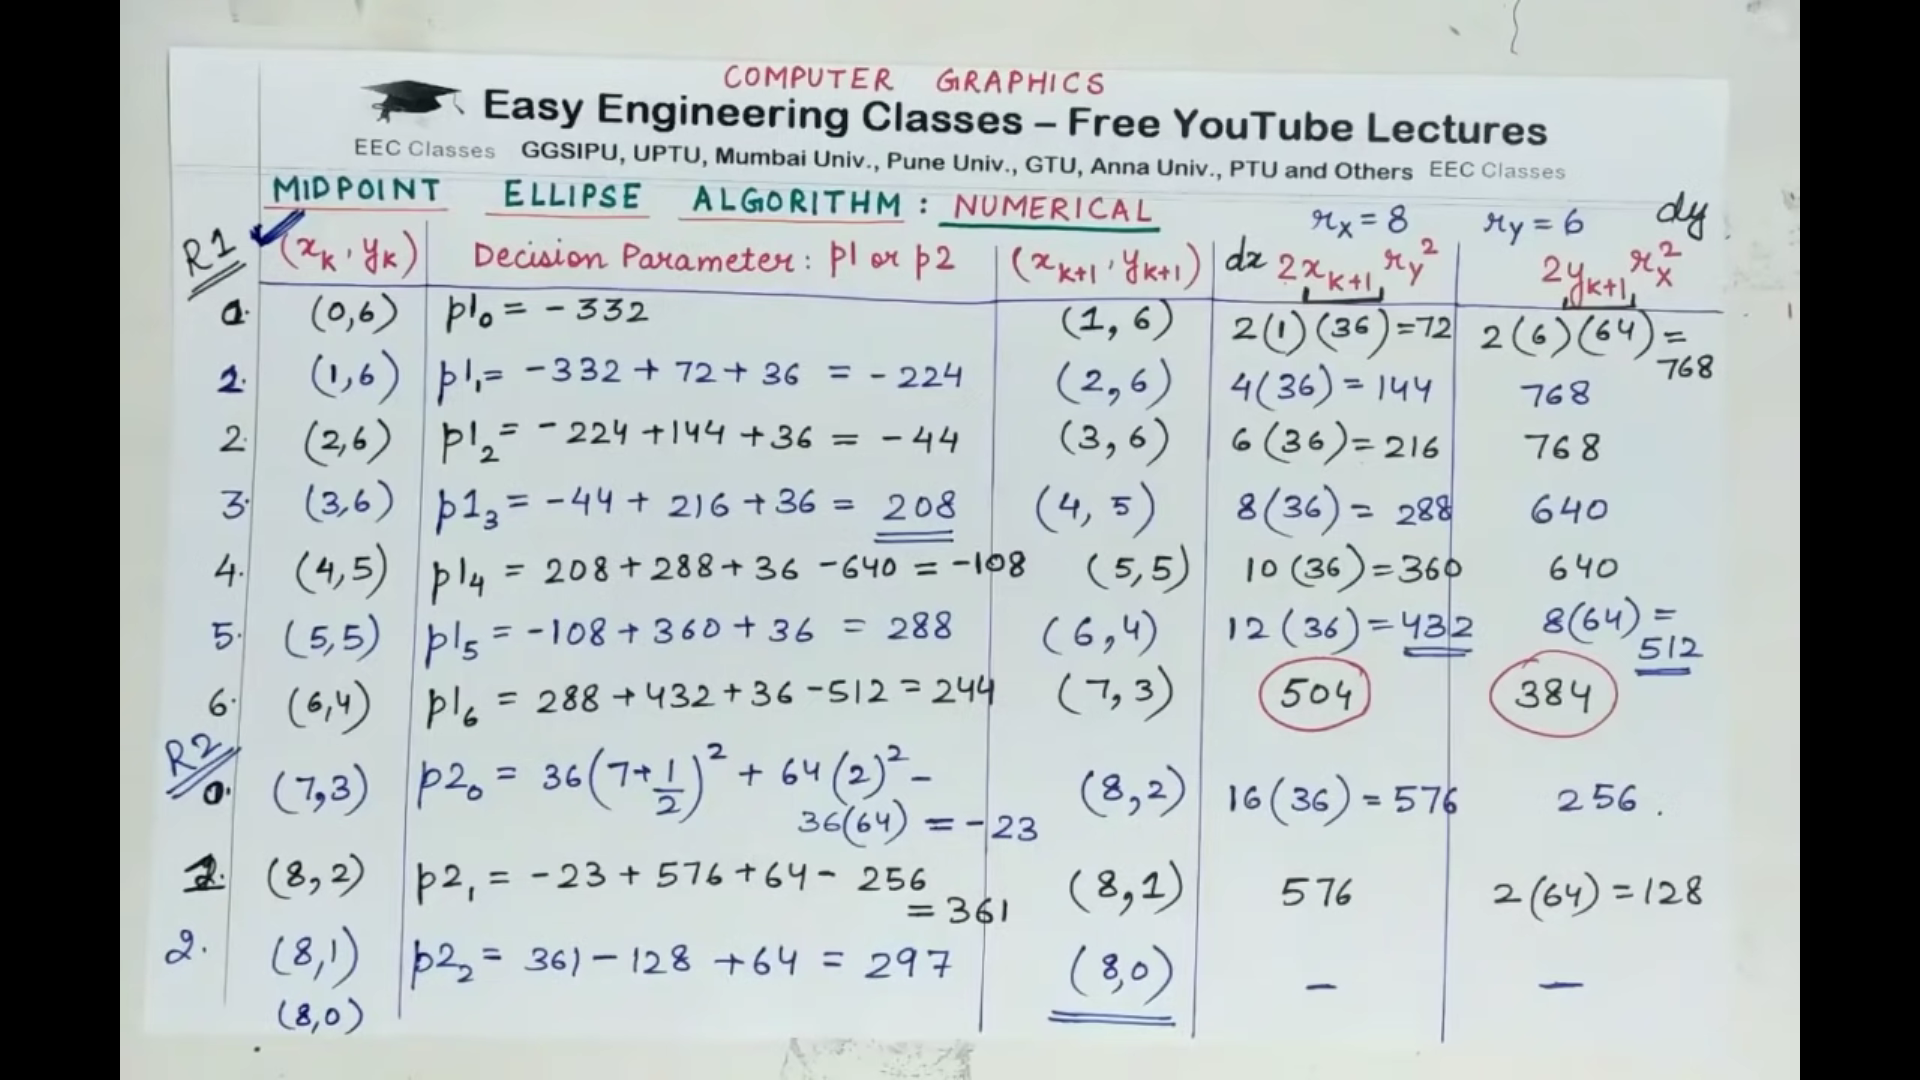 COMPUTER GRAPHICS
Easy Engineering Classes – Free YouTube Lectures
EEC Classes GGSIPU, UPTU, Mumbai Univ., Pune Univ., GTU, Anna Univ., PTU and Others EEC Classes
MIDPOINT ELLIPSE ALGORITHM : NUMERICAL rx = 8 ry = 6 dy
R1 (xk, yk) Decision Parameter: p1 or p2 (xk+1, yk+1) dx 2xk+1 ry² 2yk+1 rx²
0. (0,6) p1₀ = -332 (1, 6) 2(1)(36)=72 2(6)(64)= 768
1. (1,6) p1₁= -332 + 72 + 36 = -224 (2,6) 4(36) = 144 768
2. (2,6) p1₂= -224 +144 +36 = -44 (3,6) 6(36)= 216 768
3. (3,6) p1₃= -44 + 216 +36 = 208 (4, 5) 8(36)= 288 640
4. (4,5) p1₄ = 208+288+36 -640 = -108 (5,5) 10(36)=360 640
5. (5,5) p1₅ = -108+360+36 = 288 (6,4) 12(36)=432 8(64)= 512
6. (6,4) p1₆ = 288+432+36-512=244 (7,3) 504 384
R2
0. (7,3) p2₀ = 36(7+1/2)² + 64(2)² - 36(64) = -23 (8,2) 16(36)=576 256.
1. (8,2) p2₁ = -23+576+64- 256 = 361 (8,1) 576 2(64)=128
2. (8,1) p2₂= 361-128 +64 = 297 (8,0) – –
(8,0)